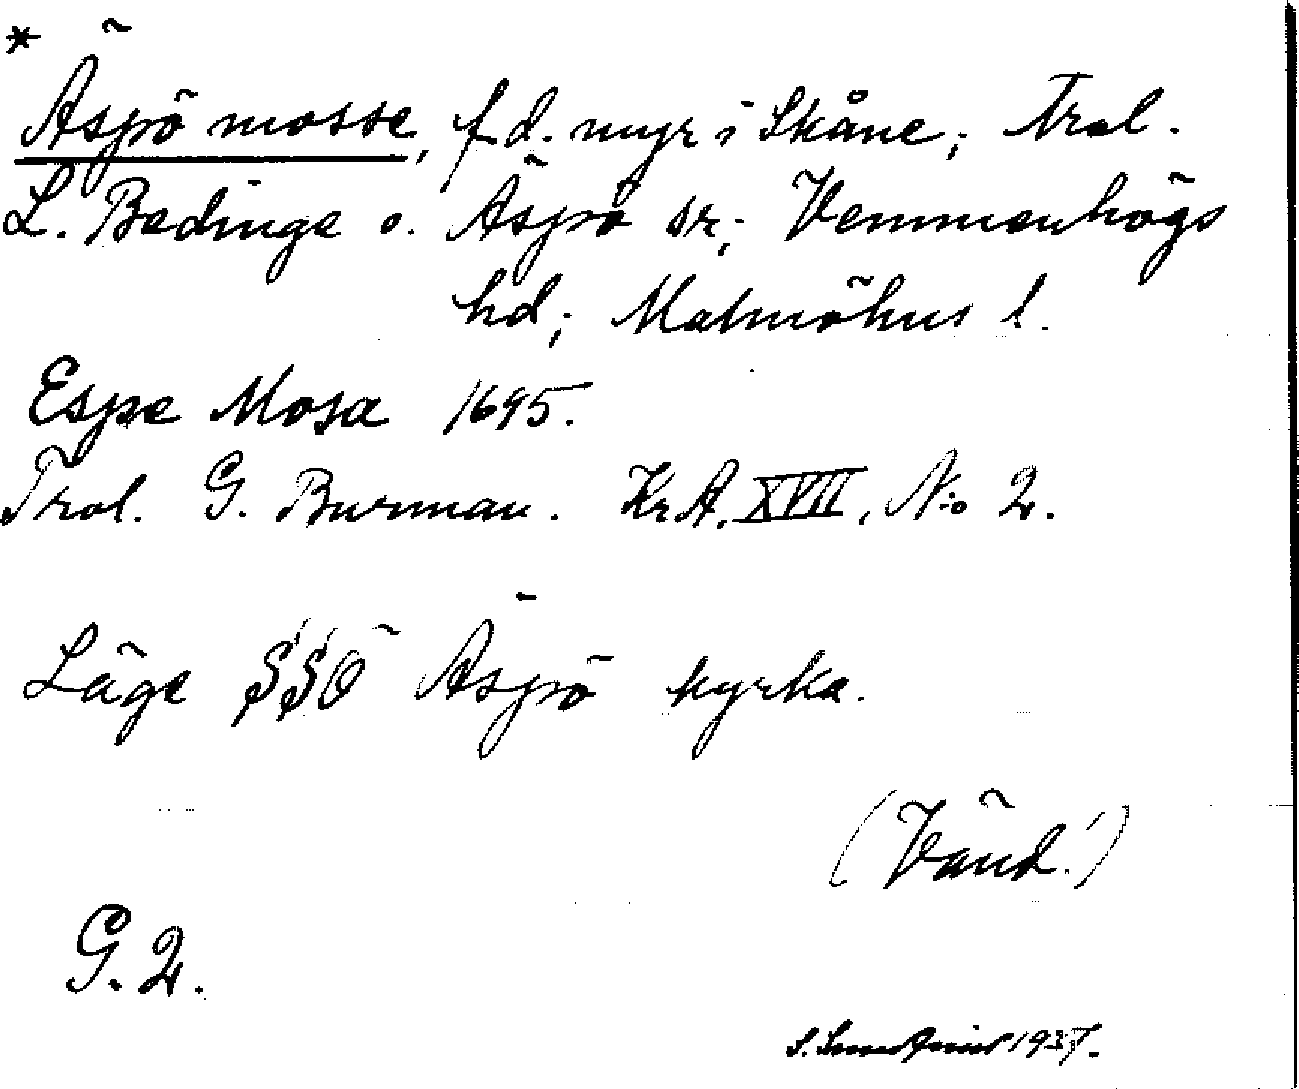 *
Äspö mosse, f d. myr i Skåne; Trol.
L. Bedinge o. Äspö sr; Vemmenhögs
hd; Malmöhus l.
Espe Mosa 1695.
Trol. G. Burman. Kr.A. XVII, N:o 2.
Läge SSÖ Äspö kyrka.
(Vänd!)
G. 2.
S. 1937.